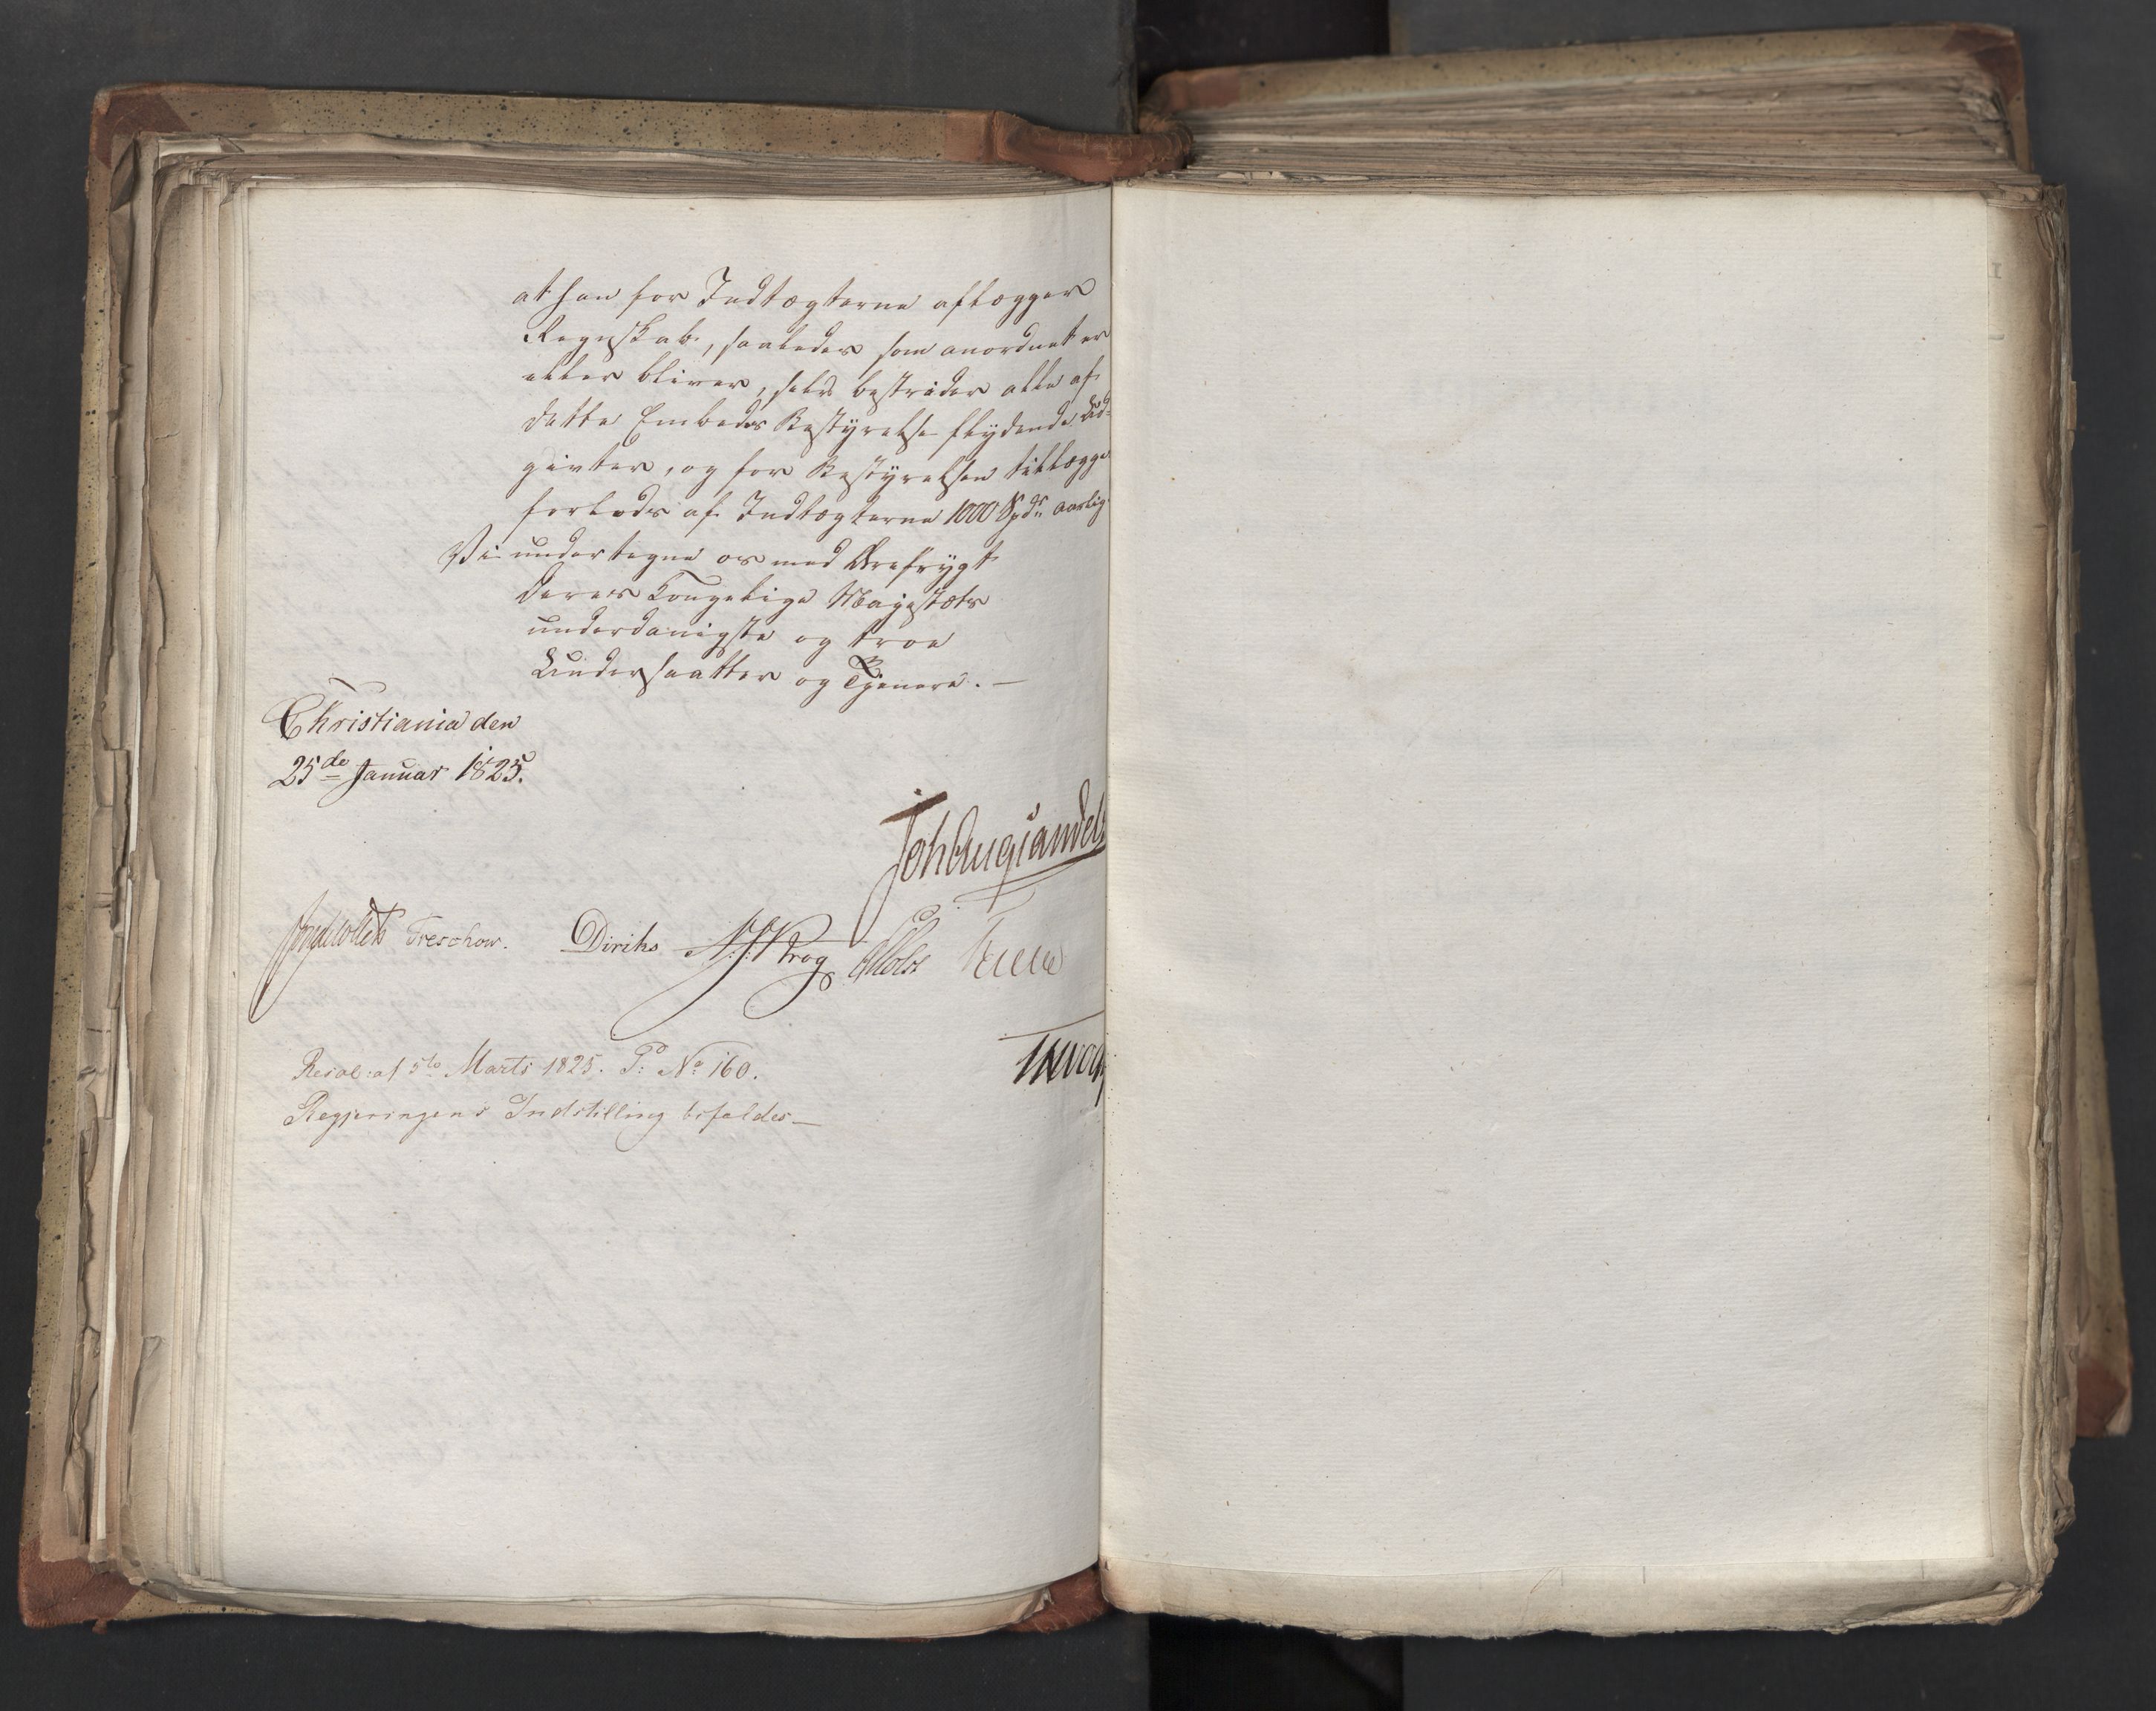 at han for Indtægterne aflægger
Regnskab, saaledes som anordnet er
eller bliver, selv bestrider alle af
dette Embeds Bestyrelse flydende Ud-
givter, og for Bestyrelsen tillægges
forlods af Indtægterne 1000 Spdr aarlig
Vi undertegne os med Ærefrygt
Deres Kongelige Majestæts
underdanigste og troe
Undersaatter og Tjenere. —
Christiania den
25de Januar 1825.
Joh Aug Sandels
Jonas Collett Treschow. Diriks N. J. Krog Holst
Resol: af 5te Marts 1825. P: No 160.
Regjeringens Indstilling bifaldes —